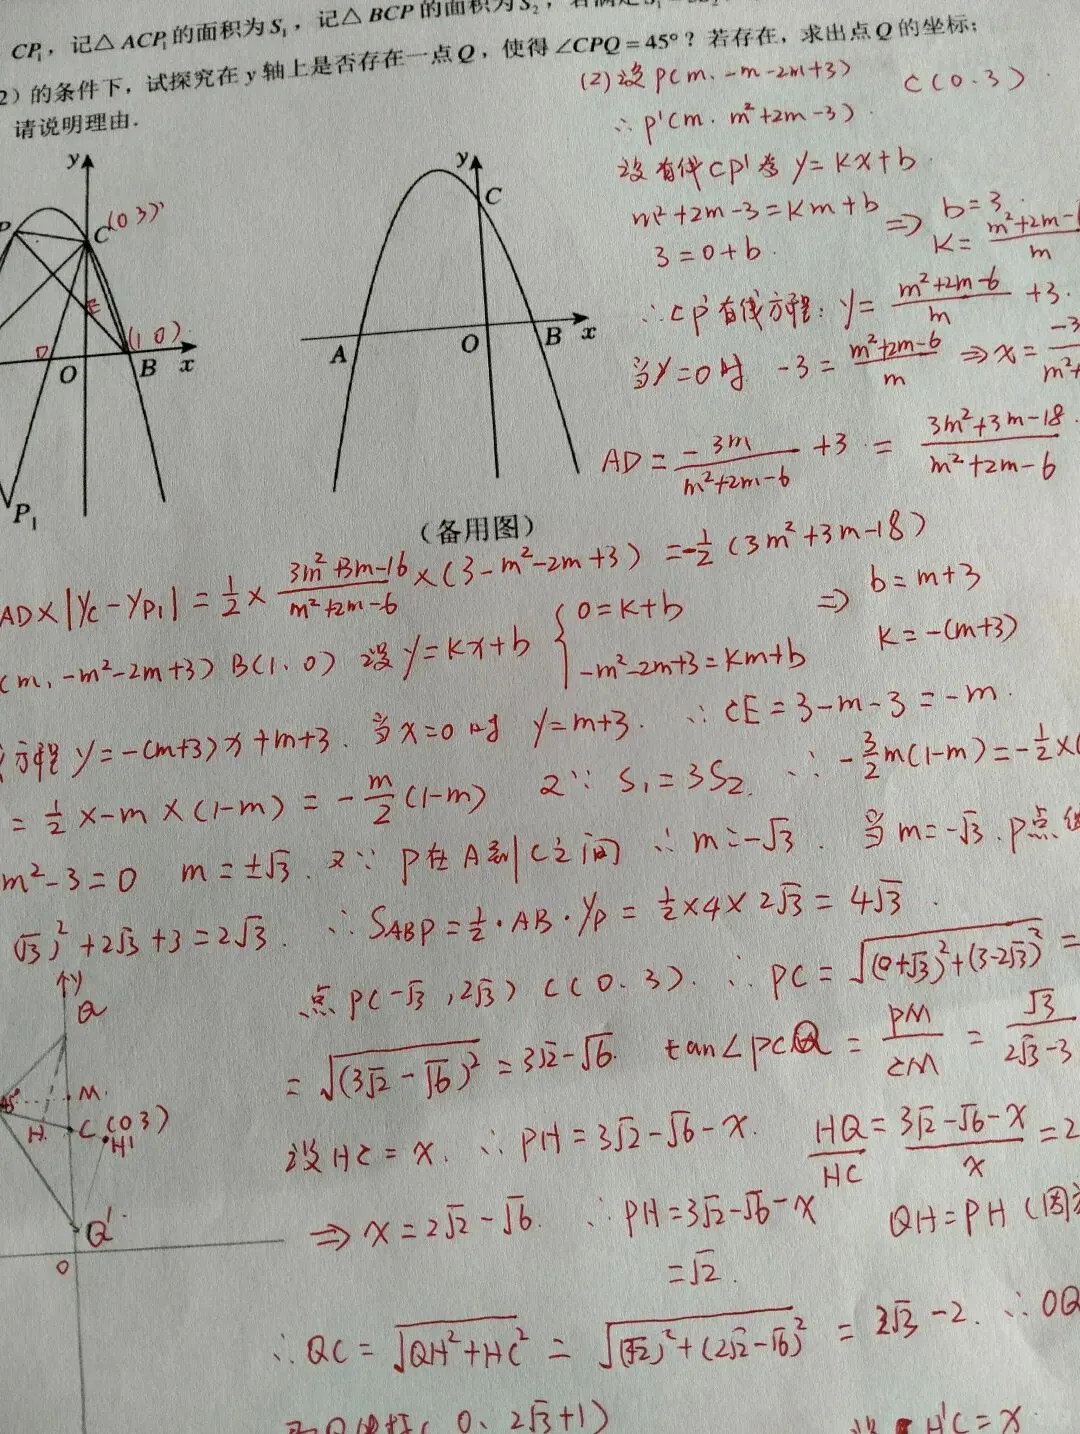 CP₁，记△ACP₁的面积为S₁，记△BCP的面积为S₂，
2）的条件下，试探究在y轴上是否存在一点Q，使得∠CPQ=45°？若存在，求出点Q的坐标；
请说明理由．
(2)设P(m、-m-2m+3) C(0.3)
∴P'(m. m²+2m-3).
设直线CP'为 y=kx+b
m²+2m-3=km+b
3=0+b.
⇒ b=3
k= m²+2m- / m
∴CP'直线方程: y= (m²+2m-6)/m +3.
当y=0时 -3= (m²+2m-6)/m ⇒x= -3 / m²+
AD= -3m/(m²+2m-6) +3 = (3m²+3m-18)/(m²+2m-6)
y C (0 3) P E D (1 0) O B x P₁
y C A O B x
（备用图）
AD×|yc-yP₁|= 1/2 × (3m²+3m-16)/(m²+2m-6) ×(3-m²-2m+3) =-1/2(3m²+3m-18)
(m、-m²-2m+3) B(1、0) 设y=kx+b { 0=k+b
-m²-2m+3=km+b
⇒ b=m+3
k=-(m+3)
方程 y=-(m+3)x+m+3. 当x=0时 y=m+3. ∴CE=3-m-3=-m.
= 1/2 ×-m×(1-m)= -m/2 (1-m) 又∵ S₁=3S₂. ∴ -3/2 m(1-m)=-1/2×(
m²-3=0 m=±√3. 又∵ P在A到C之间 ∴ m=-√3. 当m=-√3. P点
√3)²+2√3+3=2√3. ∴S_ABP=1/2·AB·yP= 1/2×4×2√3=4√3.
点P(-√3,2√3) C(0.3). ∴PC=√((0+√3)²+(3-2√3)²) =
=√((3√2-√6)²)=3√2-√6. tan∠PCQ= PM/CM = √3/(2√3-3)
设HC=x. ∴PH=3√2-√6-x. HQ/HC = (3√2-√6-x)/x =2
⇒x=2√2-√6. ∴PH=3√2-√6-x QH=PH(因
=√2.
∴QC=√(QH²+HC²) = √((√2)²+(2√2-√6)²) = 2√3-2. ∴OQ
y Q M. H C (0 3) H' Q' O
(0、2√3+1)
H'C=x